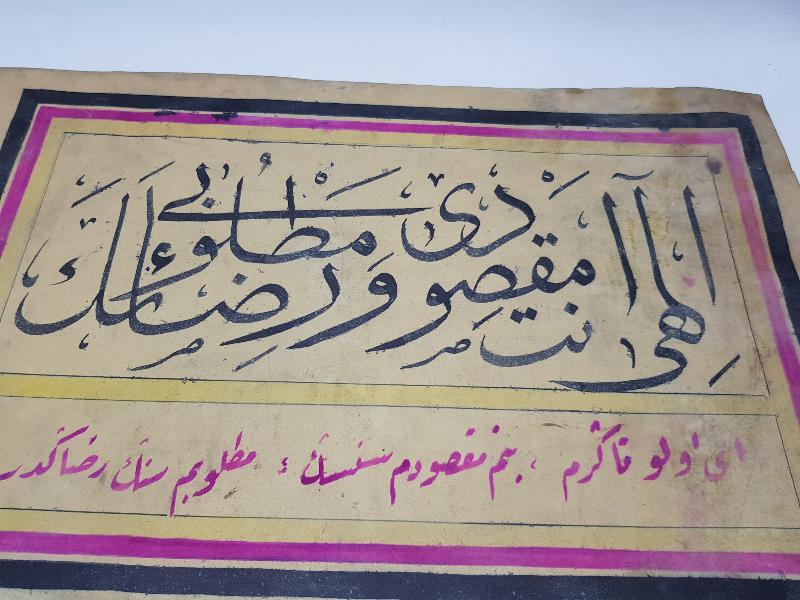 الهی انت مقصودی ورضاك مطلوبی
ای اولو تاڭرم ، بنم مقصودم سنسڭ ، مطلوبم سنڭ رضاڭدر